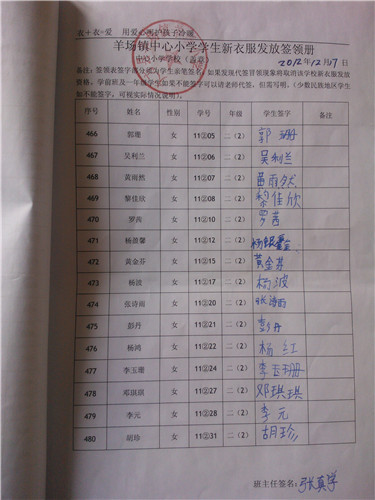 衣+衣=爱 用爱心呵护孩子冷暖
羊场镇中心小学学生新衣服发放签领册
中心小学学校(盖章) 2012年12月17日
备注:签领表签字部分须为学生亲笔签名;如果发现代签冒领现象将取消该学校新衣服发放
资格。学前班及一年级学生如果不能签字可以请老师代签,但需写明。(少数民族地区学生
如不能签字,可视实际情况说明)。
序号 姓名 性别 学号 年级 学生签字 备注
466 郭珊 女 11②05 二(2) 郭珊
467 吴利兰 女 11②06 二(2) 吴利兰
468 黄雨然 女 11②07 二(2) 黄雨然
469 黎佳欣 女 11②08 二(2) 黎佳欣
470 罗茜 女 11②10 二(2) 罗茜
471 杨盈馨 女 11②12 二(2) 杨
472 黄金芬 女 11②15 二(2) 黄金芬
473 杨波 女 11②17 二(2) 杨波
474 张诗雨 女 11②20 二(2) 张诗雨
475 彭丹 女 11②21 二(2) 彭丹
476 杨鸿 女 11②22 二(2) 杨红
477 李玉珊 女 11②24 二(2) 李玉珊
478 邓琪琪 女 11②27 二(2) 邓琪琪
479 李元 女 11②28 二(2) 李元
480 胡珍 女 11②31 二(2) 胡珍
班主任签名:张真学